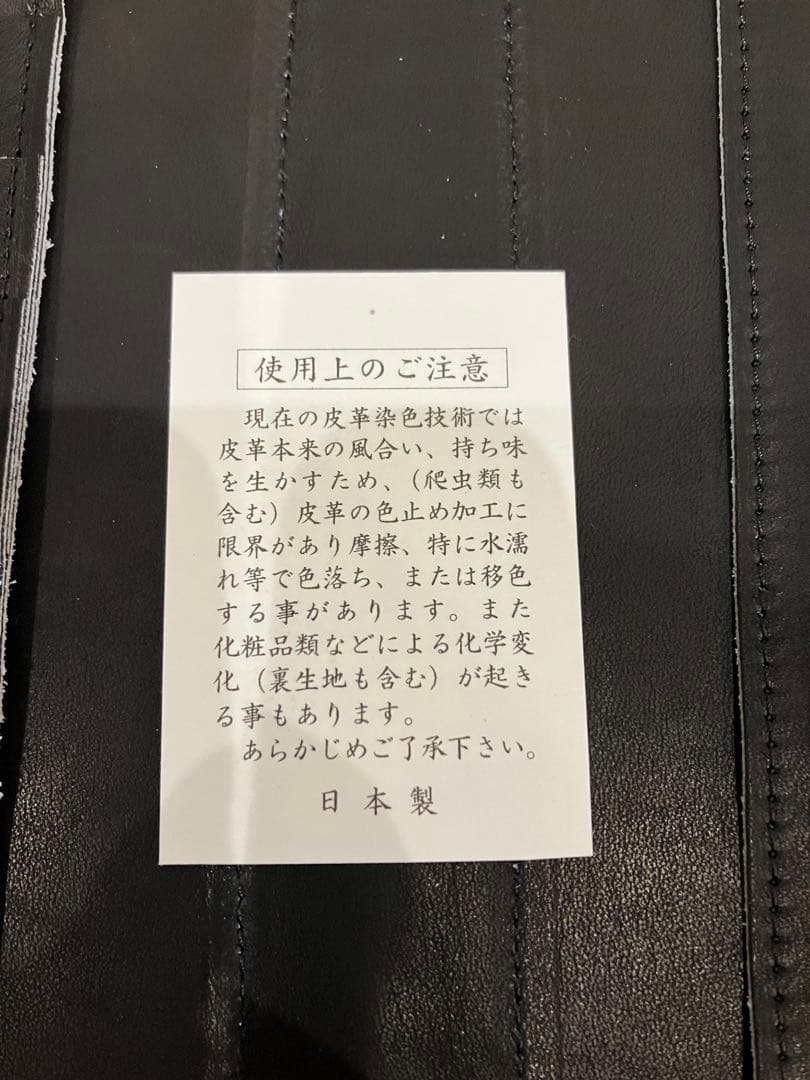 使用上のご注意
現在の皮革染色技術では
皮革本来の風合い、持ち味
を生かすため、（爬虫類も
含む）皮革の色止め加工に
限界があり摩擦、特に水濡
れ等で色落ち、または移色
する事があります。また
化粧品類などによる化学変
化（裏生地も含む）が起き
る事もあります。
あらかじめご了承下さい。
日本製